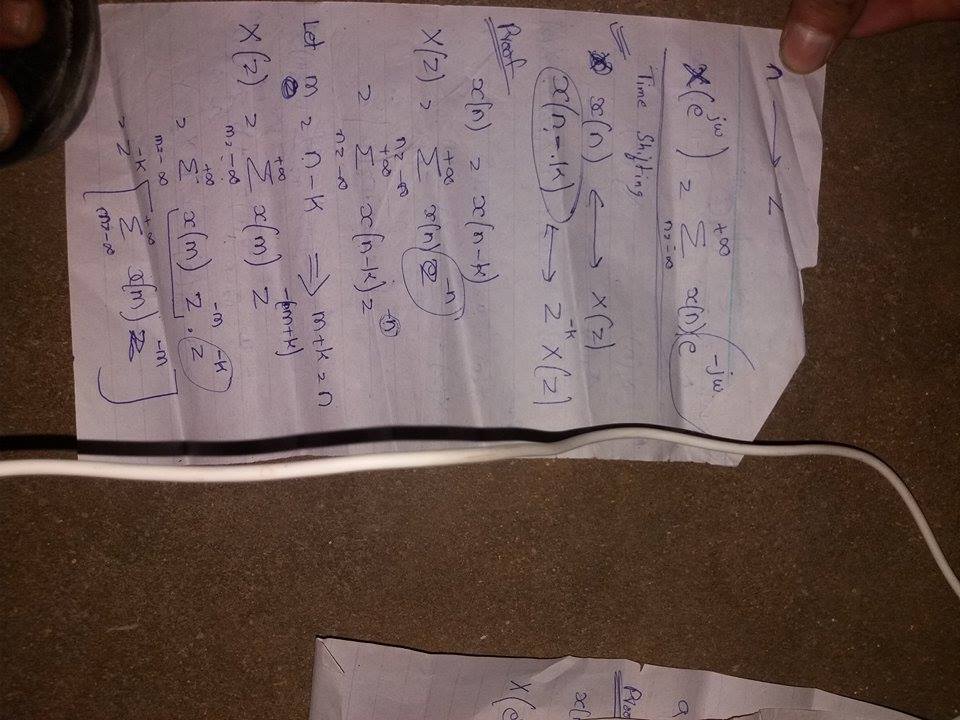 n → Z
X(e^jω) = Σ_{n=-∞}^{+∞} x(n) e^-jω
Time Shifting
x(n) ↔ X(z)
x(n-k) ↔ Z^-k X(z)
Proof
x(n) = x(n-k)
X(z) = Σ_{n=-∞}^{+∞} x(n) z^-n
= Σ_{n=-∞}^{+∞} x(n-k) z^-n
Let m = n-k ⇒ m+k = n
X(z) = Σ_{m=-∞}^{+∞} x(m) z^-(m+k)
= Σ_{m=-∞}^{+∞} [x(m) z^-m . z^-k
= z^-k [Σ_{m=-∞}^{+∞} x(m) z^-m]
a
Proof
x(
X(e